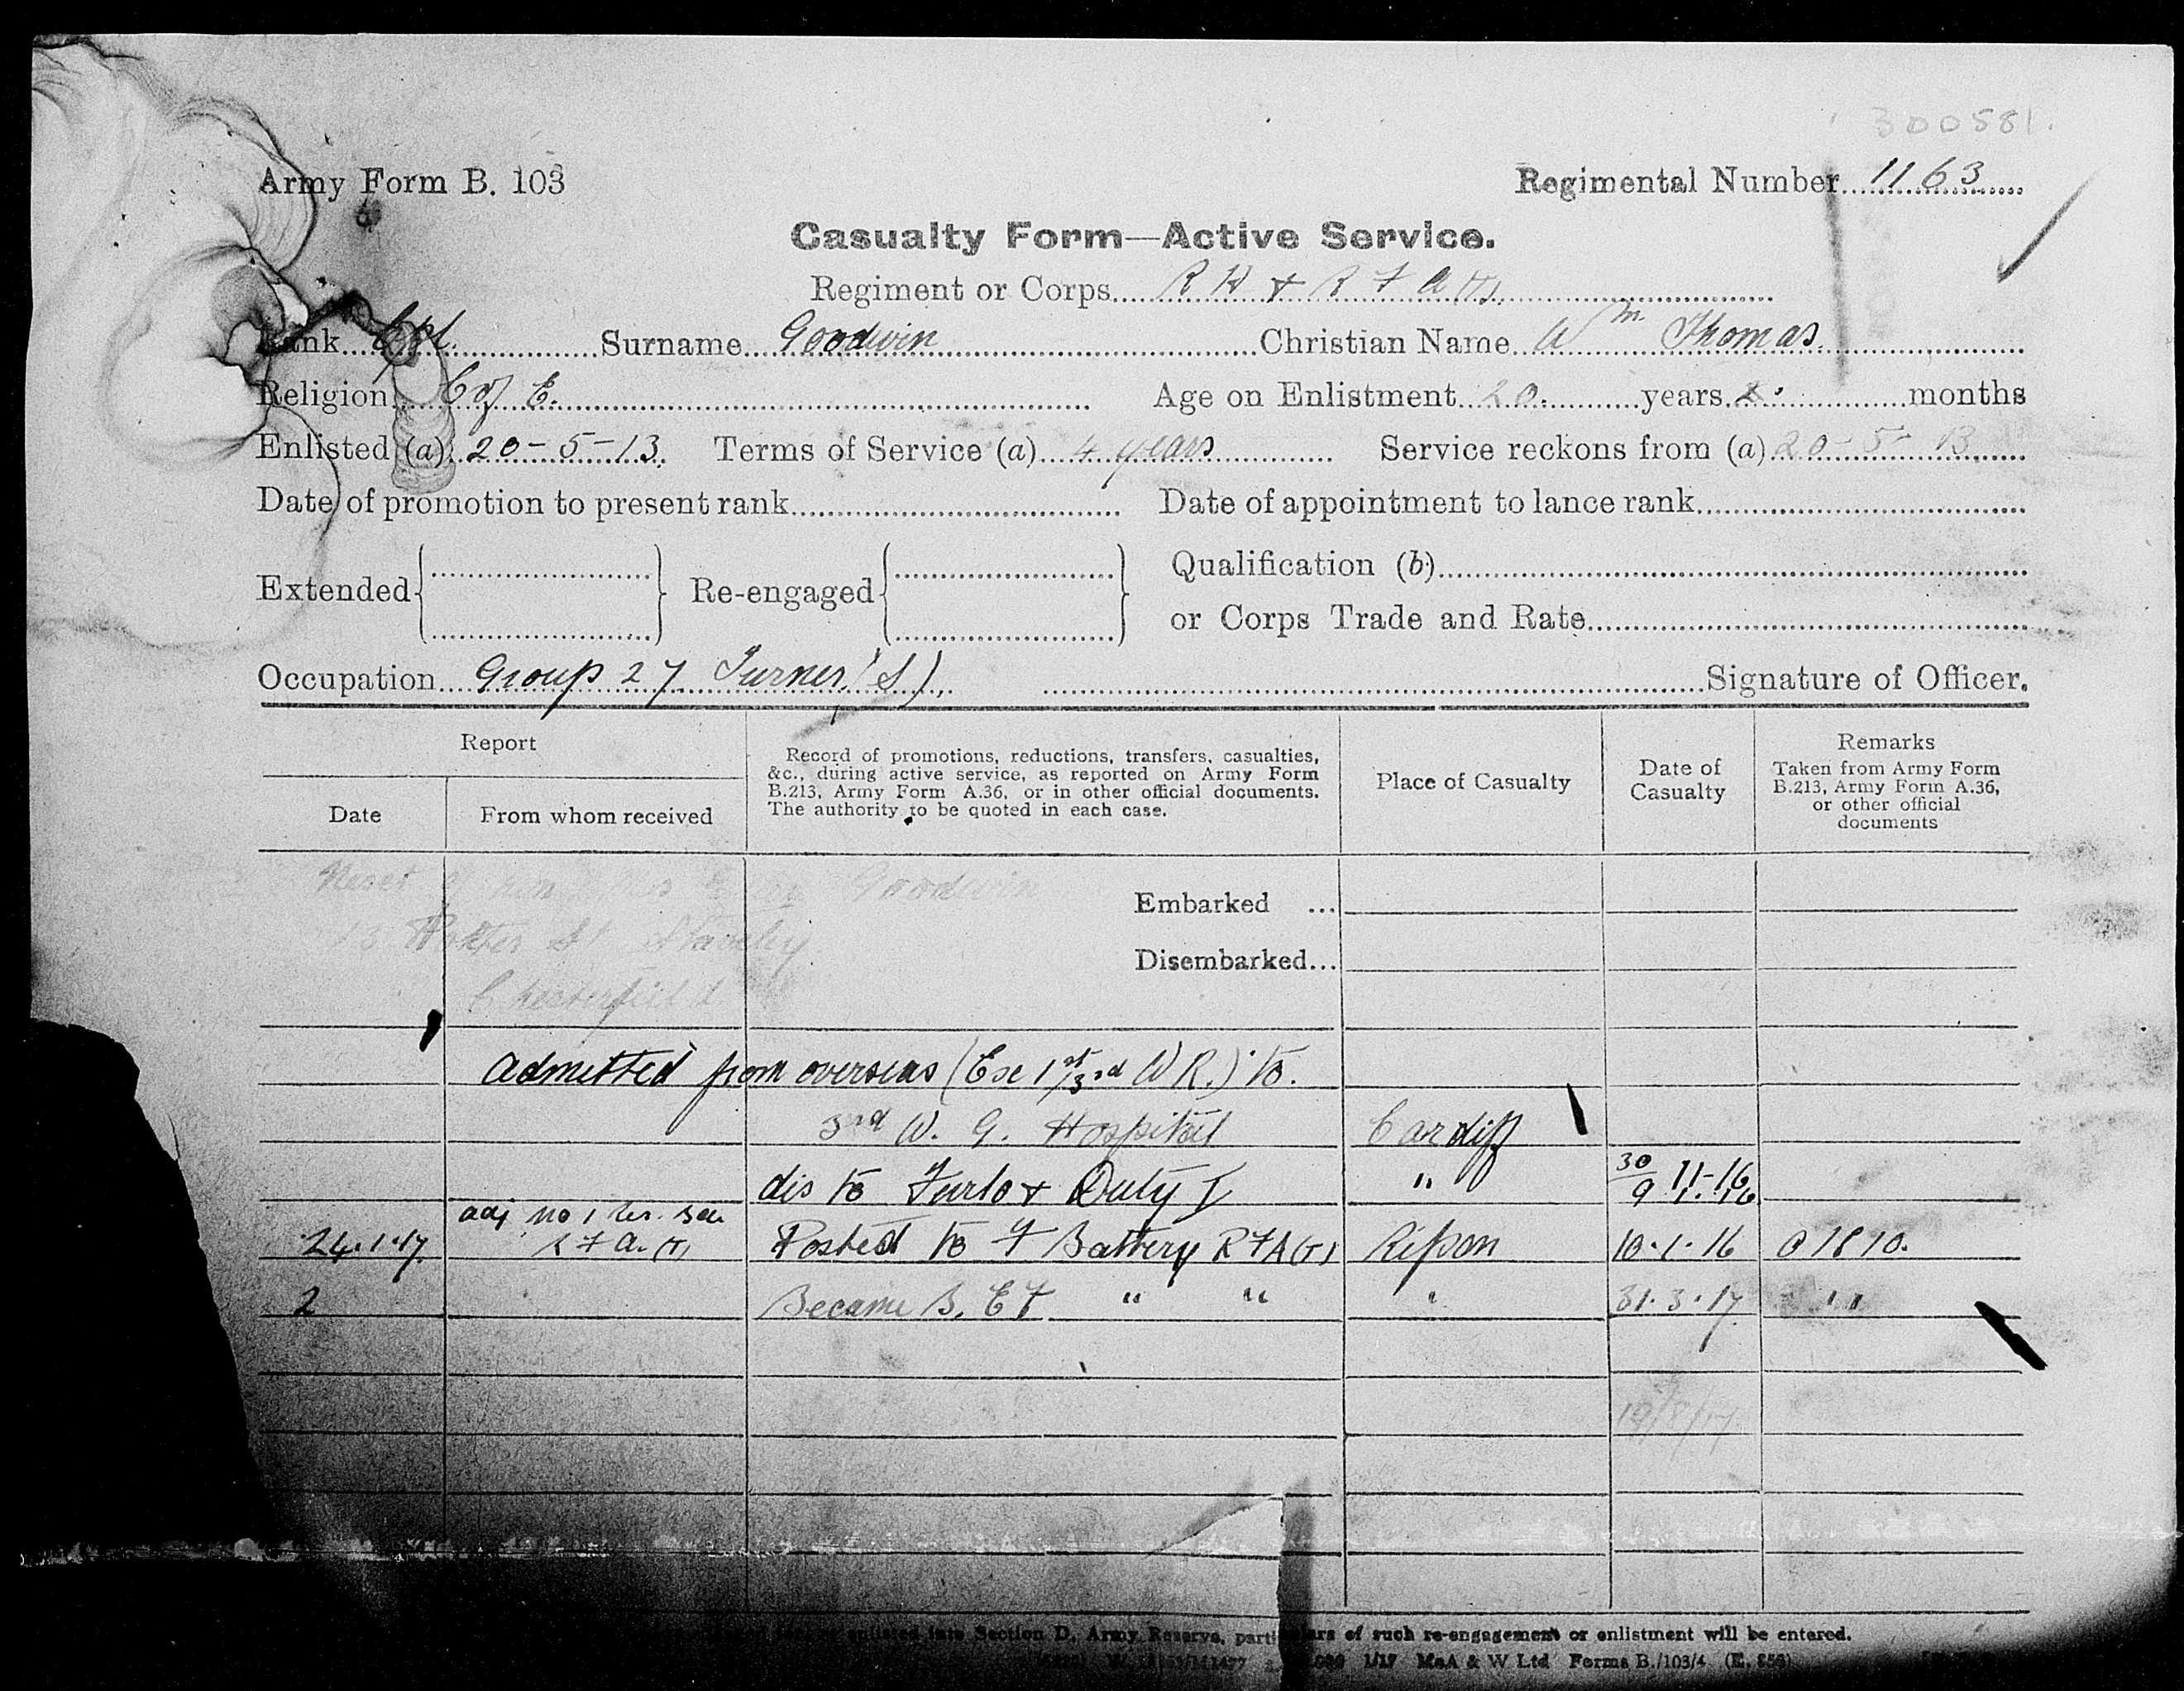 300581.
Army Form B. 103
Regimental Number 1163
Casualty Form—Active Service.
Regiment or Corps R H & R F A (T)
Rank Cpl. Surname Goodwin Christian Name Wm Thomas.
Religion C of E. Age on Enlistment 20. years 2. months
Enlisted (a) 20-5-13. Terms of Service (a) 4 years Service reckons from (a) 20-5-13
Date of promotion to present rank Date of appointment to lance rank
Extended Re-engaged Qualification (b)
or Corps Trade and Rate
Occupation Group 27 Turner (S) Signature of Officer.
Report
Date
From whom received
Record of promotions, reductions, transfers, casualties,
&c., during active service, as reported on Army Form
B.213, Army Form A.36, or in other official documents.
The authority to be quoted in each case.
Place of Casualty
Date of
Casualty
Remarks
Taken from Army Form
B.213, Army Form A.36,
or other official
documents
Goodwin
Embarked ...
13 Porter St Staveley
Disembarked...
Chesterfield
admitted from overseas (Ex 1st/3rd W R.) to.
3rd W. G. Hospital Cardiff
dis to Furlo & Duty I " 30/9 11-16
adj no 1 Res. Bde
24.1.17. R F A. (T) Posted to F Battery R F A (T) Ripon 10.1.16 O 1810.
2 Became B. E F " " " 31.3.17. "
19/8/17
enlisted into Section D, Army Reserve, particulars of such re-engagement or enlistment will be entered.
1/17 McA & W Ltd Forms B./103/4 (E. 856)